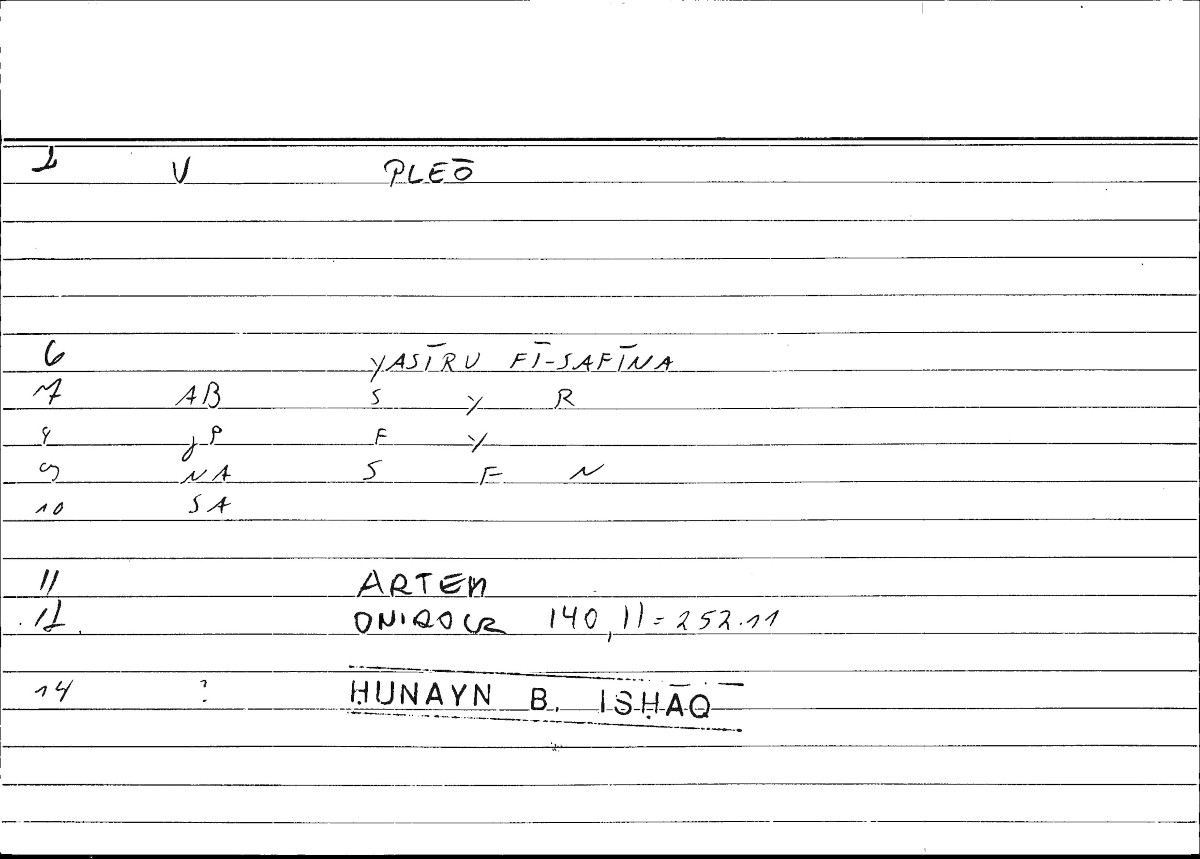 1 V PLEŌ
6 YASĪRU FĪ-SAFĪNA
7 AB S Y R
8 JP F Y
9 NA S F N
10 SA
11 ARTEM
12 ONIROCR 140,11=252.11
14 ? ḤUNAYN B. ISḤĀQ